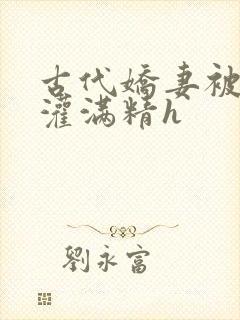 古代嬌妻被
灌滿精h
劉永富